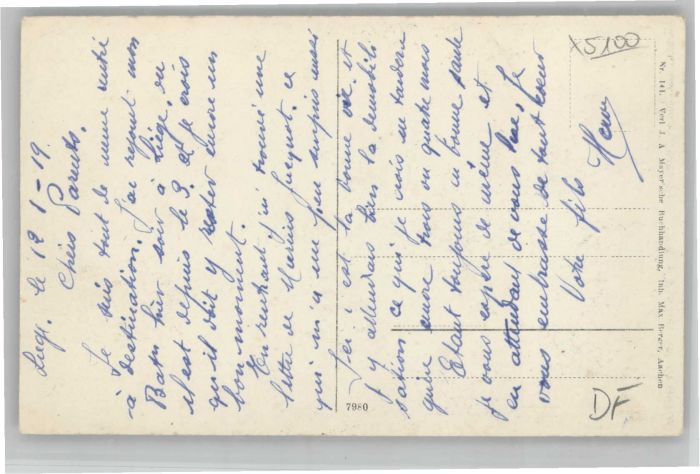 le 12-1-19.
Chers Parents,
Je suis tout de même rentré
à destination. J'ai rejoint mon
Baton hier soir à Liège, où
il est depuis le 3. et je crois
qu'il doit y rester encore un
bon moment.
En rentrant j'ai trouvé une
lettre de Jacquot. ce
qui m'a un peu surpris mais
Ici c'est la bonne vie et
j'y attendrai bien la démobili
sation ce qui je crois ne tardera
guère encore trois ou quatre mois
Etant toujours en bonne santé
je vous espère de même et
en attendant de vous lire, je
vous embrasse de tout cœur
Votre fils
x5100
DF
7980
Nr. 141. Verl J. A Mayer'sche Buchhandlung, Inh. Max Berger, Aachen